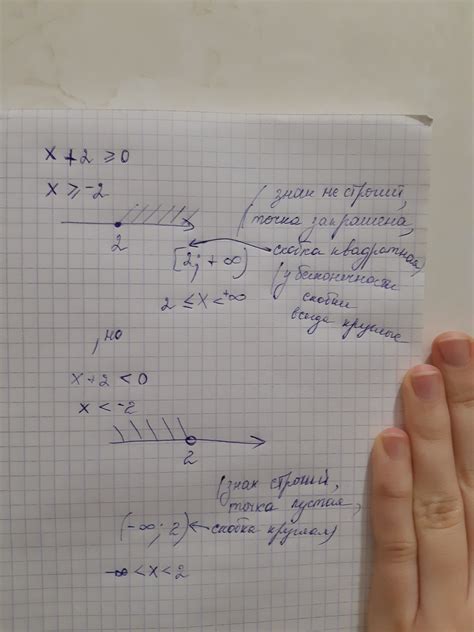 x + 2 ≥ 0
x ≥ -2
(знак не строгий,
точка закрашена,
скобка квадратная)
2
x
[2; +∞)
(у бесконечности
скобки
всегда круглые
2 ≤ x < +∞
, но
x + 2 < 0
x < -2
2
(знак строгий,
точка пустая,
скобка круглая)
(-∞; 2)
-∞ < x < 2